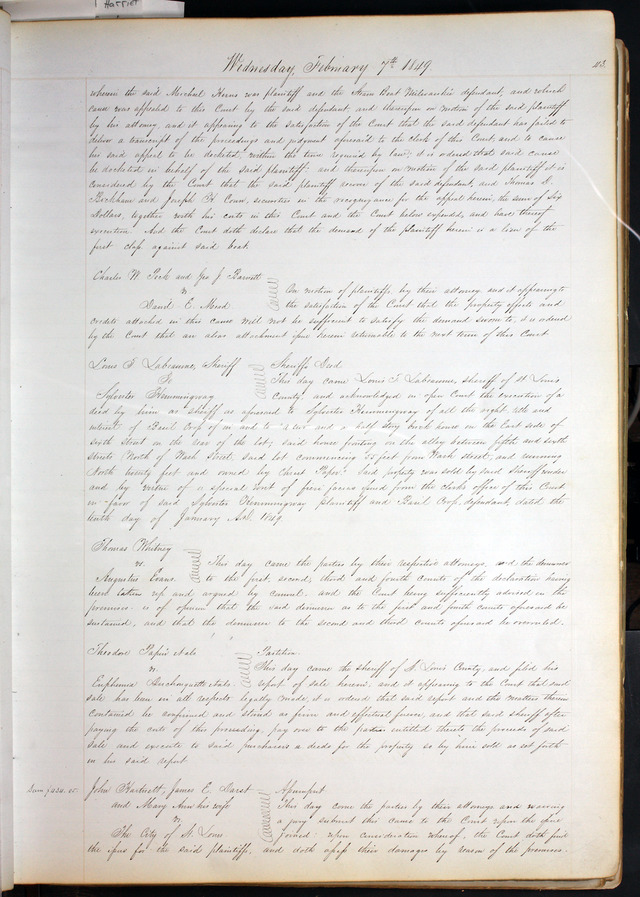 Harriet
Wednesday February 7th 1849
43.
wherein the said Michael Kerns was plaintiff and the Steam Boat Milwaukie defendant, and which
cause was appealed to this Court by the said defendant and thereupon on motion of the said plaintiff
by his attorney, and it appearing to the satisfaction of the Court that the said defendant has failed to
deliver a transcript of the proceedings and judgment aforesaid to the clerk of this Court, and to cause
his said appeal to be docketed, within the time required by law, it is ordered that said cause
be docketed in behalf of the said plaintiff. and thereupon on motion of the said plaintiff it is
considered by the Court that the said plaintiff recover of the said defendant, and Thomas S.
Beckham and Joseph H Conn, securities in the recognizance for the appeal herein, the sum of Six
Dollars, together with his costs in this Court and the Court below expended, and have thereof
execution And the Court doth declare that the demand of the plaintiff herein is a lien of the
first class against said boat
Charles W. Peck and Geo J Barnett
vs
David E. Mead
On motion of plaintiffs, by their attorney and it appearing to
the satisfaction of the Court that the property effects and
credits attached in this cause will not be sufficient to satisfy the demand sworn to, it is ordered
by the Court that an alias attachment issue herein returnable to the next term of this Court
Louis T. Labeaume, Sheriff
To
Sylvester Hemmingway
Sheriffs Deed
This day came Louis T. Labeaume, sheriff of St Louis
County, and acknowledged in open Court the execution of a
deed by him as sheriff as aforesaid to Sylvester Hemmingway of all the right, title and
interest of Basil Crop of in and to a two and a half story brick house on the East side of
sixth Street on the rear of the lot, said house fronting on the alley between fifth and sixth
streets North of Wash Street, said lot commencing 55 feet from Wash street, and running
North twenty feet and owned by Christ Pape. Said property was sold by said Sheriff under
and by virtue of a special writ of fieri facias issued from the clerks office of this Court
in favor of said Sylvester Hemmingway plaintiff and Basil Crop, defendant, dated the
tenth day of January A.D. 1849
Thomas Whitney
vs.
Augustus Evans
This day came the parties by their respective attorneys, and the demurrer
to the first, second, third and fourth counts of the declaration having
been taken up and argued by counsel. and the Court being sufficiently advised in the
premises is of opinion that the said demurrer as to the first and fourth counts aforesaid be
sustained, and that the demurrer to the second and third counts aforesaid be overruled.
Theodore Papin et als
vs.
Euphrasia et als
Partition
This day came the sheriff of St. Louis County, and filed his
report of sale herein, and it appearing to the Court that said
sale has been in all respects legally made, it is ordered that said report and the matters therein
contained be confirmed and stand as firm and effectual forever, and that said sheriff after
paying the costs of this proceeding, pay over to the parties entitled thereto the proceeds of said
sale and execute to said purchasers a deed for the property so by him sold as set forth
in his said report
John Hartnett, James E. Darst
and Mary Ann his wife
vs.
The City of St. Louis
Assumpsit
This day come the parties by their attorneys and waiving
a jury submit this cause to the Court upon the issue
joined: upon consideration whereof, the Court doth find
the issue for the said plaintiffs, and doth assess their damages by reason of the premises.